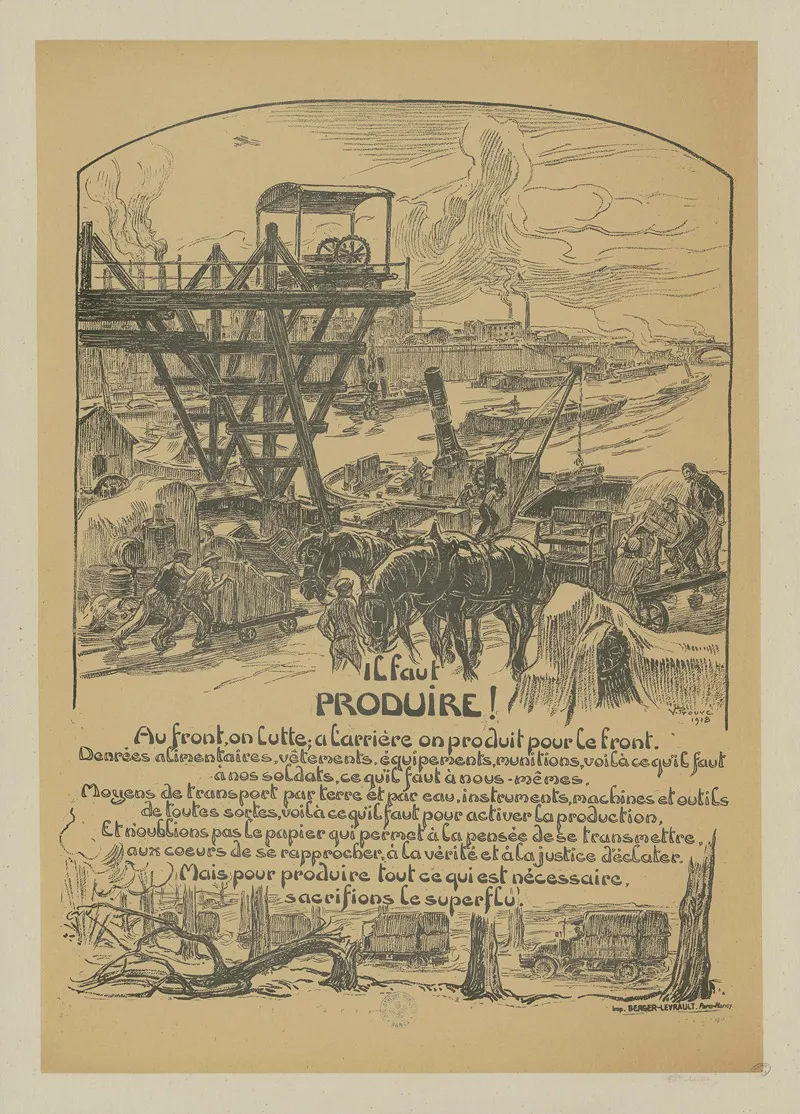 V. Prouvé
1918
il faut
PRODUIRE !
Au front, on lutte; a l'arrière on produit pour le front.
Denrées alimentaires, vêtements, équipements, munitions, voilà ce qu'il faut
à nos soldats, ce qu'il faut à nous-mêmes.
Moyens de transport par terre et par eau, instruments, machines et outils
de toutes sortes, voilà ce qu'il faut pour activer la production,
Et n'oublions pas le papier qui permet à la pensée de se transmettre,
aux coeurs de se rapprocher, à la vérité et à la justice d'éclater.
Mais pour produire tout ce qui est nécessaire,
sacrifions le superflu.
Imp. BERGER-LEVRAULT. Paris-Nancy.